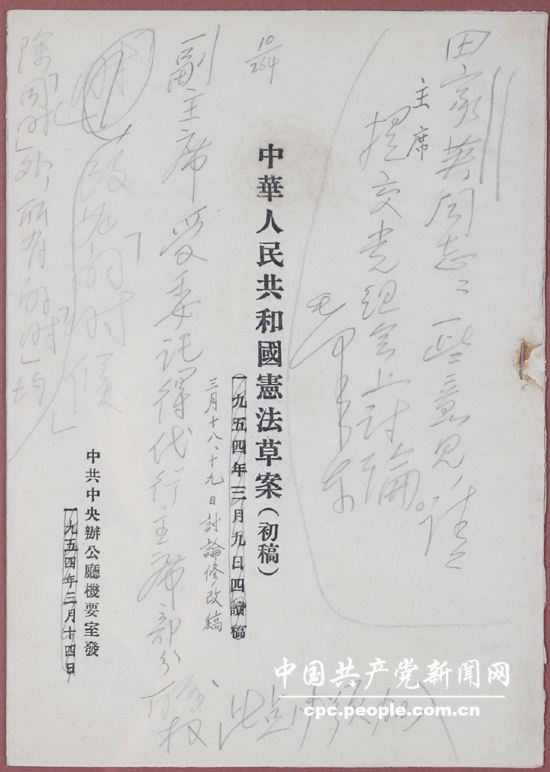 田家英同志：一些意見，請
提交党组会上討論。
毛澤東
主席
10/264
中華人民共和國憲法草案（初稿）
一九五四年三月九日四讀稿
三月十八、十九日討論修改稿
副主席受委託得代行主席部分職权
此点
加入
改为「的时候」
除「同时」外所有的「时」均
中共中央辦公廳機要室發
一九五四年三月十四日
中国共产党新闻网
cpc.people.com.cn